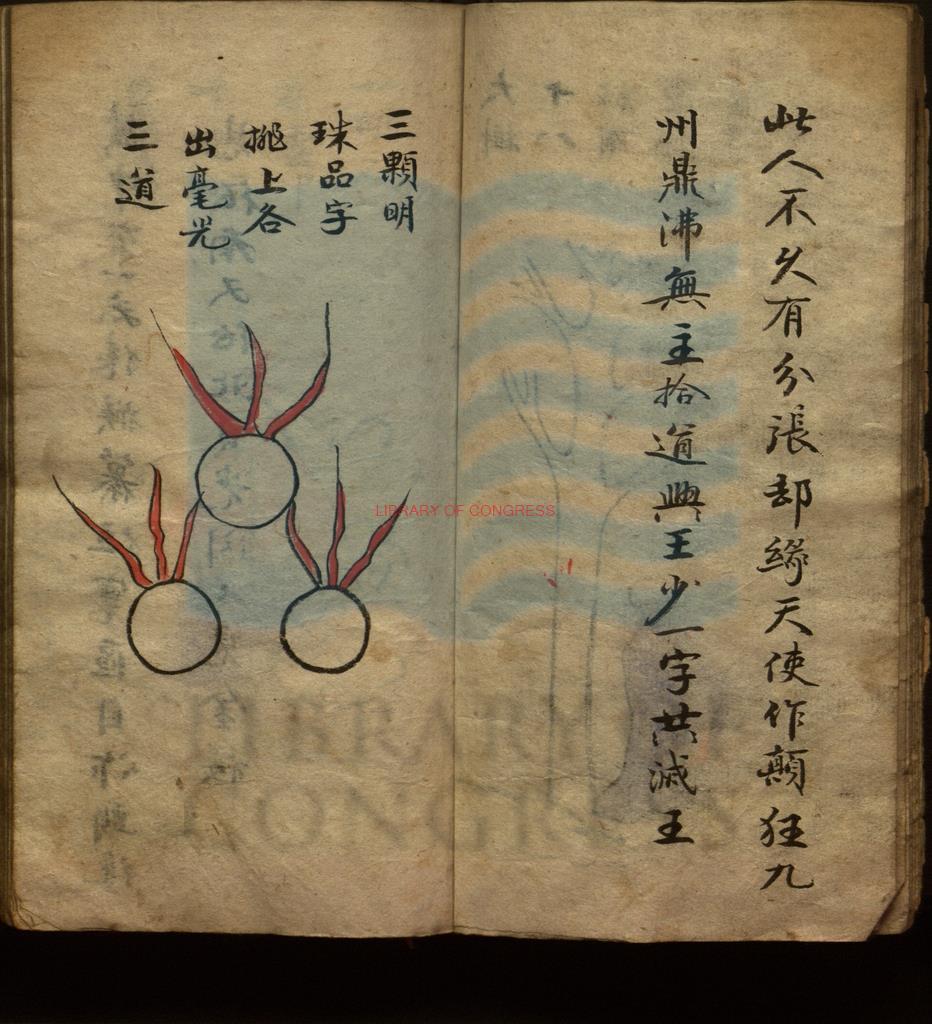 此人不久有分張却緣天使作顛狂九
州鼎沸無主拾道興王少一字共滅王
三顆明
珠品字
挑上各
出毫光
三道
LIBRARY OF CONGRESS